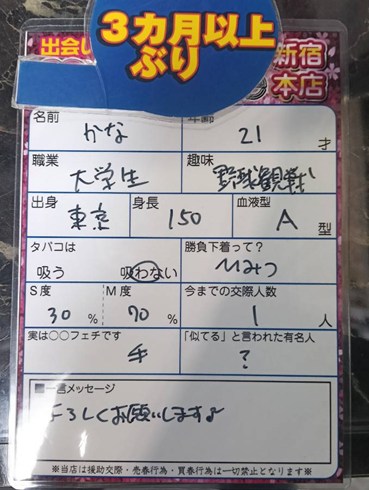 3カ月以上
ぶり
出会い
新宿
本店
名前 かな 年齢 21 才
職業 大学生 趣味 野球観戦
出身 東京 身長 150 血液型 A 型
タバコは 吸う 吸わない 勝負下着って? ひみつ
S度 30 % M度 70 % 今までの交際人数 1 人
実は○○フェチです 手 「似てる」と言われた有名人 ?
■一言メッセージ
よろしくお願いします♪
※当店は援助交際・売春行為・買春行為は一切禁止となります※